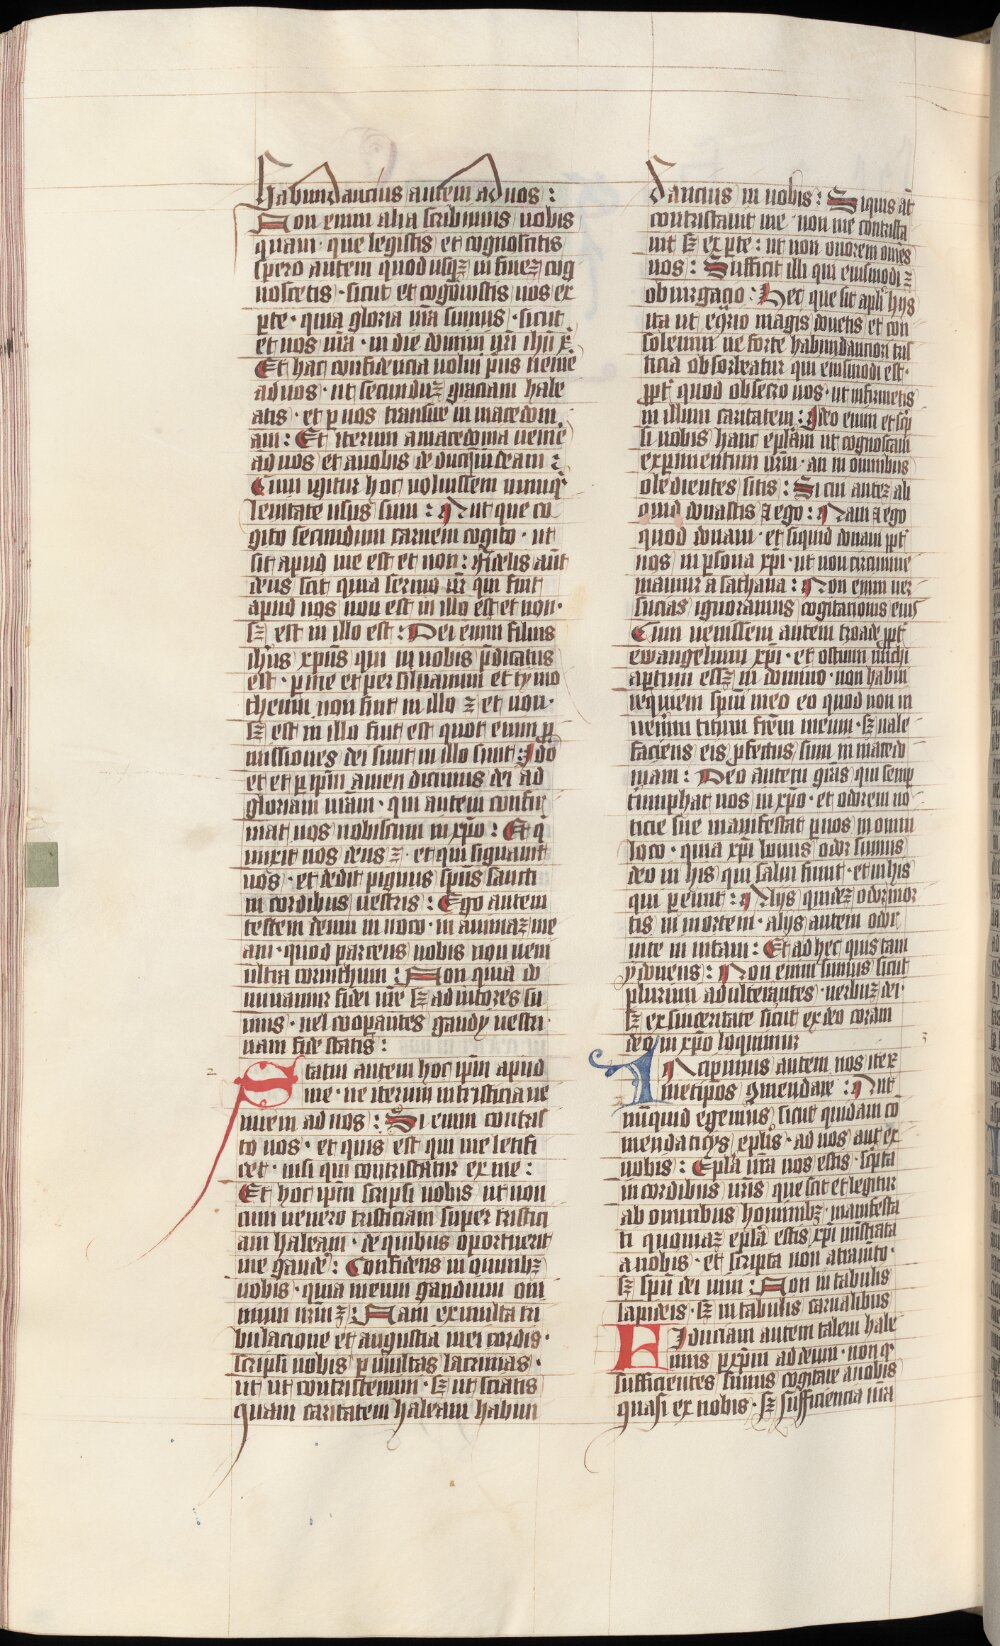 habundancius autem ad uos :
Non enim alia scribimus uobis
quam · que legistis et cognoscitis
spero autem quod usqꝫ in fineꝫ cog
noscetis · sicut et cognouistis nos ex
ꝑte · quia gloria ur̄a sumus · sicut
et uos nr̄a · in die domini nr̄i ihū x̄
Et hac confidencia uolui p̄us uenire
ad uos · ut secundaꝫ graciam habe
atis · et ꝑ uos transire in macedoni
am : Et iterum a macedonia uenire
ad uos et a uobis deduci in iudeam :
Cum igitur hoc uoluissem nunꝗͥd
leuitate usus sum : Aut que co
gito secundum carnem cogito · ut
sit apud me est et non : fidelis aūt
deus scit quia sermo nr̄ qui fuit
apud uos non est in illo est et non ·
sꝫ est in illo est : Dei enim filius
ihūs xp̄us qui in uobis p̄dicatus
est · ꝑ me et per siluanum et tymo
theum non fuit in illo ꝫ et non ·
sꝫ est in illo fuit est quot enim ꝓ
missiones dei sunt in illo sunt : Ido
et et ꝑ ip̄m amen dicimus deo ad
gloriam nr̄am · qui autem confir
mat nos uobiscum in xp̄o : Et q̄
unxit nos deus ꝫ · et qui signauit
nos · et dedit pignus sp̄us sancti
in cordibus nestris : Ego autem
testem deum inuoco · in animaꝫ me
am · quod parcens uobis non ueni
ultra corinthum : Non quia do
minamur fidei ur̄e sꝫ adiutores su
mus · uel cooꝑantes gaudij uestri
nam fide statis :
Statui autem hoc ip̄m apud
me · ne iterum in tristicia ue
nirem ad uos : Si enim contris
to uos · et quis est qui me letifi
cet · nisi qui contristatur ex me :
Et hoc ip̄m scripsi uobis ut non
cum uenero tristiciam super tristici
am habeam · de quibus oportuerit
me gaudē : Confidens in omnibꝫ
uobis · quia meum gaudium om
nium ur̄m ꝫ : Nam ex multa tri
bulacione et angustia mei cordis ·
scripsi uobis ꝑ multas lacrimas ·
ut ut contristemini · sꝫ ut sciatis
quam caritatem habeam habun
dancius in uobis : Siquis aūt
contristauit me non me contrista
uit sꝫ ex ꝑte : ut non onorem om̄es
uos : Sufficit illi qui eiusmodi ꝫ
obiurgagō : Hec que fit a pl̄ib hijs
ita ut eqͦrio magis donetis et con
solemini ne forte habundanciori tris
ticia obsorbeatur qui eiusmodi est ·
ꝓpt̄ quod obsecro uos · ut infirmetis
in illum caritatem : Ideo enim et scͥp
si uobis hanc ep̄lam ut cognoscam
experimentum ur̄m · an in omnibus
obedientes sitis : Si cui auteꝫ ali
quid donastis ꝫ ego : Nam ꝫ ego
quod donaui · et siquid donaui ꝓpt̄
uos in ꝑsona xp̄i · ut non circumue
niamur a sathana : Non enim ues
sucias ignoramus cogitacionis eius
Cum uenissem autem troade ꝓpt̄
ewangelium xp̄i · et ostium michi
aꝑtum essꝫ in domino · non habui
requiem sp̄ui meo eo quod non in
uenim titum fr̄em meum · sꝫ uale
faciens eis ꝓfectus sum in macedo
niam : Deo autem gr̄as qui semꝑ
triumphat nos in xp̄o · et odorem no
ticie sue manifestat ꝑ nos in omni
loco · quia xp̄i bonus odor sumus
deo in his qui salui fiunt · et in his
qui ꝑeunt : Alijs quideꝫ odor mor
tis in mortem · alijs autem odor
uite in uitam : Et ad hec quis tam
ydoneus : Non enim sumus sicut
plurimi adulterantes · uerbuꝫ dei ·
sꝫ ex sinceritate sicut ex deo coram
deo in xp̄o loquimur
INcipimus autem nos iter
metipos ꝯmendare : Aut
nūquid egemus sicut quidam cō
mendaticijs ep̄lis · ad uos aut ex
uobis : Epl̄a nr̄a uos estis · scͥpta
in cordibus nr̄is que scit et legitur
ab omnibus hominibꝫ · manifesta
ti quoniaꝫ epl̄a estis xp̄i miīstrata
a nobis · et scripta non atramēto ·
sꝫ sp̄u dei uiui : Non in tabulis
lapideis · sꝫ in tabulis carnalibus
Fiduciam autem talem habe
mus ꝑ xp̄m ad deum · non qͥ
sufficientes simus cogitare a nobis
quasi ex nobis · sꝫ sufficiencia nr̄a